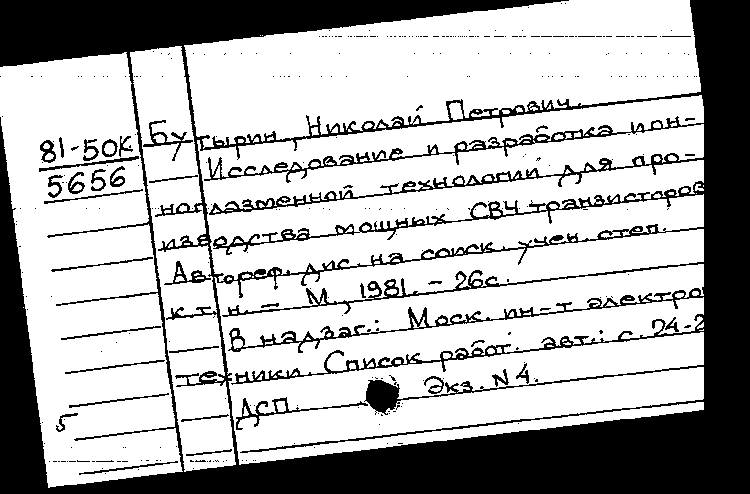 81-50К
5656
Бутырин, Николай Петрович.
Исследование и разработка ион-
ноплазменной технологии для про-
изводства мощных СВЧ транзисторов
Автореф. дис. на соиск. учен. степ.
к.т.н. - М., 1981. - 26с.
В надзаг.: Моск. ин-т электро
техники. Список работ. авт.: с. 24-2
ДСП. Экз. N4.
5